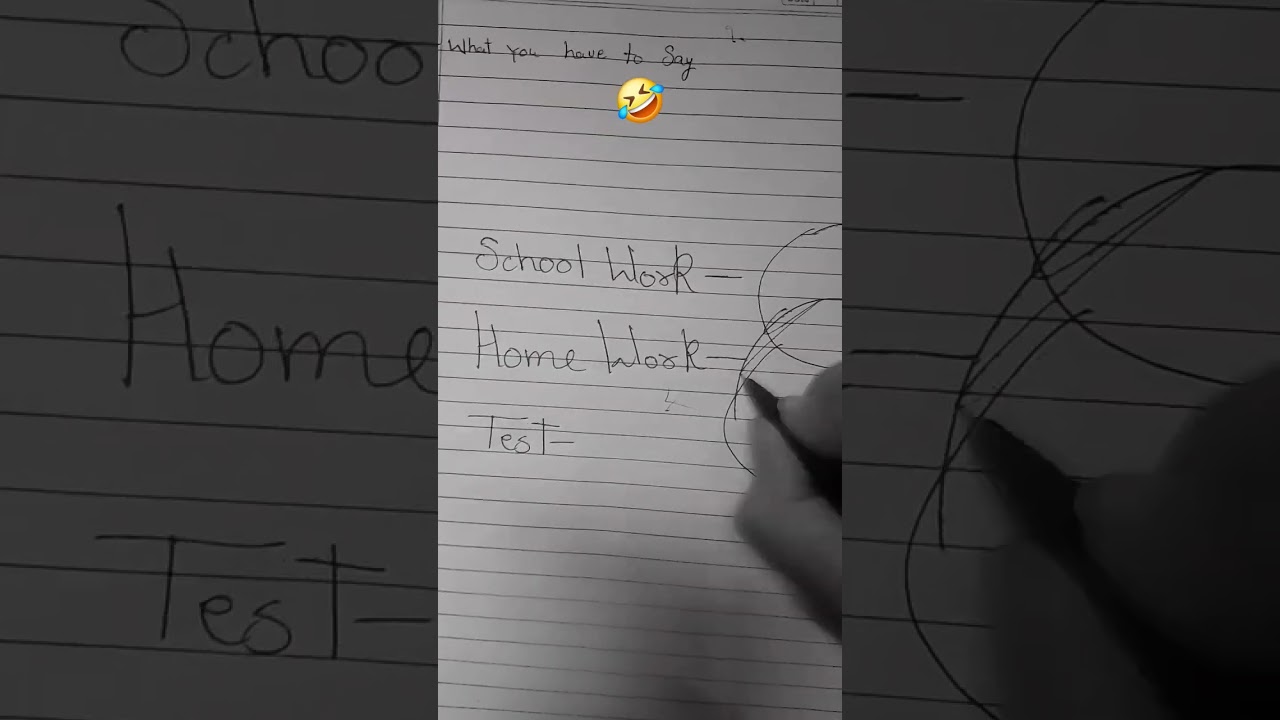 What you have to Say
🤣
School Work —
Home Work —
Test —